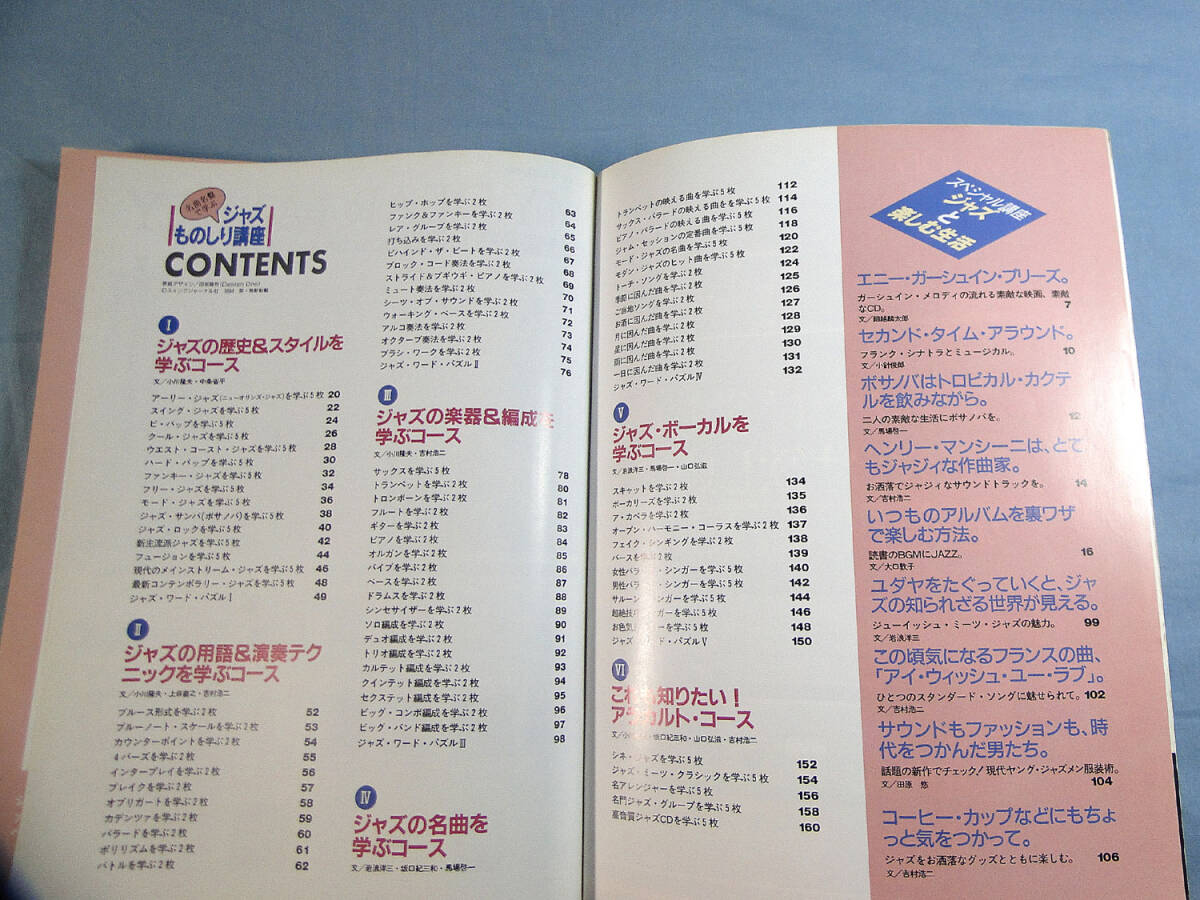 名曲名盤で学ぶ
ジャズ
ものしり講座
CONTENTS
I
ジャズの歴史&スタイルを
学ぶコース
文/小川隆夫・中条省平
アーリー・ジャズ(ニューオリンズ・ジャズ)を学ぶ5枚 20
スイング・ジャズを学ぶ5枚 22
ビ・バップを学ぶ5枚 24
クール・ジャズを学ぶ5枚 26
ウエスト・コースト・ジャズを学ぶ5枚 28
ハード・バップを学ぶ5枚 30
ファンキー・ジャズを学ぶ5枚 32
フリー・ジャズを学ぶ5枚 34
モード・ジャズを学ぶ5枚 36
ジャズ・サンバ(ボサノバ)を学ぶ5枚 38
ジャズ・ロックを学ぶ5枚 40
新主流派ジャズを学ぶ5枚 42
フュージョンを学ぶ5枚 44
現代のメインストリーム・ジャズを学ぶ5枚 46
最新コンテンポラリー・ジャズを学ぶ5枚 48
ジャズ・ワード・パズルI 49
II
ジャズの用語&演奏テク
ニックを学ぶコース
ブルース形式を学ぶ2枚 52
ブルーノート・スケールを学ぶ2枚 53
カウンターポイントを学ぶ2枚 54
4バーズを学ぶ2枚 55
インタープレイを学ぶ2枚 56
ブレイクを学ぶ2枚 57
オブリガートを学ぶ2枚 58
カデンツァを学ぶ2枚 59
バラードを学ぶ2枚 60
ポリリズムを学ぶ2枚 61
バトルを学ぶ2枚 62
ヒップ・ホップを学ぶ2枚 63
ファンク&ファンキーを学ぶ2枚 64
レア・グルーブを学ぶ2枚 65
打ち込みを学ぶ2枚 66
ビハインド・ザ・ビートを学ぶ2枚 67
ブロック・コード奏法を学ぶ2枚 68
ストライド&ブギウギ・ピアノを学ぶ2枚 69
ミュート奏法を学ぶ2枚 70
シーツ・オブ・サウンドを学ぶ2枚 71
ウォーキング・ベースを学ぶ2枚 72
アルコ奏法を学ぶ2枚 73
オクターブ奏法を学ぶ2枚 74
ブラシ・ワークを学ぶ2枚 75
ジャズ・ワード・パズルII 76
III
ジャズの楽器&編成を
学ぶコース
文/小川隆夫・吉村浩二
サックスを学ぶ5枚 78
トランペットを学ぶ2枚 80
トロンボーンを学ぶ2枚 81
フルートを学ぶ2枚 82
ギターを学ぶ2枚 83
ピアノを学ぶ2枚 84
オルガンを学ぶ2枚 85
バイブを学ぶ2枚 86
ベースを学ぶ2枚 87
ドラムスを学ぶ2枚 88
シンセサイザーを学ぶ2枚 89
ソロ編成を学ぶ2枚 90
デュオ編成を学ぶ2枚 91
トリオ編成を学ぶ2枚 92
カルテット編成を学ぶ2枚 93
クインテット編成を学ぶ2枚 94
セクステット編成を学ぶ2枚 95
ビッグ・コンボ編成を学ぶ2枚 96
ビッグ・バンド編成を学ぶ2枚 97
ジャズ・ワード・パズルIII 98
IV
ジャズの名曲を
学ぶコース
文/岩浪洋三・坂口紀三和・馬場啓一
トランペットの映える曲を学ぶ5枚 112
サックス・バラードの映える曲を学ぶ5枚 114
ピアノ・バラードの映える曲を学ぶ5枚 116
ジャム・セッションの定番曲を学ぶ5枚 118
モード・ジャズの名曲を学ぶ5枚 120
モダン・ジャズのヒット曲を学ぶ5枚 122
トーチ・ソングを学ぶ2枚 124
季節に因んだ曲を学ぶ2枚 125
ご当地ソングを学ぶ2枚 126
お酒に因んだ曲を学ぶ2枚 127
月に因んだ曲を学ぶ2枚 128
星に因んだ曲を学ぶ2枚 129
雨に因んだ曲を学ぶ2枚 130
一日に因んだ曲を学ぶ2枚 131
ジャズ・ワード・パズルIV 132
V
ジャズ・ボーカルを
学ぶコース
文/岩浪洋三・馬場啓一・山口弘滋
スキャットを学ぶ2枚 134
ボーカリーズを学ぶ2枚 135
ア・カペラを学ぶ2枚 136
オープン・ハーモニー・コーラスを学ぶ2枚 137
フェイク・シンギングを学ぶ2枚 138
バースを学ぶ2枚 139
女性バラ・シンガーを学ぶ5枚 140
男性バラ・シンガーを学ぶ5枚 142
サルーン・シンガーを学ぶ5枚 144
超絶技ガーを学ぶ5枚 146
お色気ーを学ぶ5枚 148
ジャズ・ワード・パズルV 150
VI
これ知りたい!
アラカルト・コース
シネ・ジャズを学ぶ5枚 152
ジャズ・ミーツ・クラシックを学ぶ5枚 154
名アレンジャーを学ぶ5枚 156
名門ジャズ・グループを学ぶ5枚 158
高音質ジャズCDを学ぶ5枚 160
スペシャル講座
ジャズ
と
楽しむ生活
エニー・ガーシュイン・プリーズ。
ガーシュイン・メロディの流れる素敵な映画、素敵
なCD。 7
セカンド・タイム・アラウンド。
フランク・シナトラとミュージカル。 10
文/小針俊郎
ボサノバはトロピカル・カクテ
ルを飲みながら。
二人の素敵な生活にボサノバを。 12
文/馬場啓一
ヘンリー・マンシーニは、とて
もジャジィな作曲家。
お洒落でジャジィなサウンドトラックを。 14
文/吉村浩二
いつものアルバムを裏ワザ
で楽しむ方法。
読書のBGMにJAZZ。 16
文/大口敦子
ユダヤをたぐっていくと、ジャ
ズの知られざる世界が見える。
ジューイッシュ・ミーツ・ジャズの魅力。 99
文/岩浪洋三
この頃気になるフランスの曲、
「アイ・ウィッシュ・ユー・ラブ」。
ひとつのスタンダード・ソングに魅せられて。 102
文/吉村浩二
サウンドもファッションも、時
代をつかんだ男たち。
話題の新作でチェック!現代ヤング・ジャズメン服装術。
文/田原 悠 104
コーヒー・カップなどにもちょ
っと気をつかって。
ジャズをお洒落なグッズとともに楽しむ。 106
文/吉村浩二